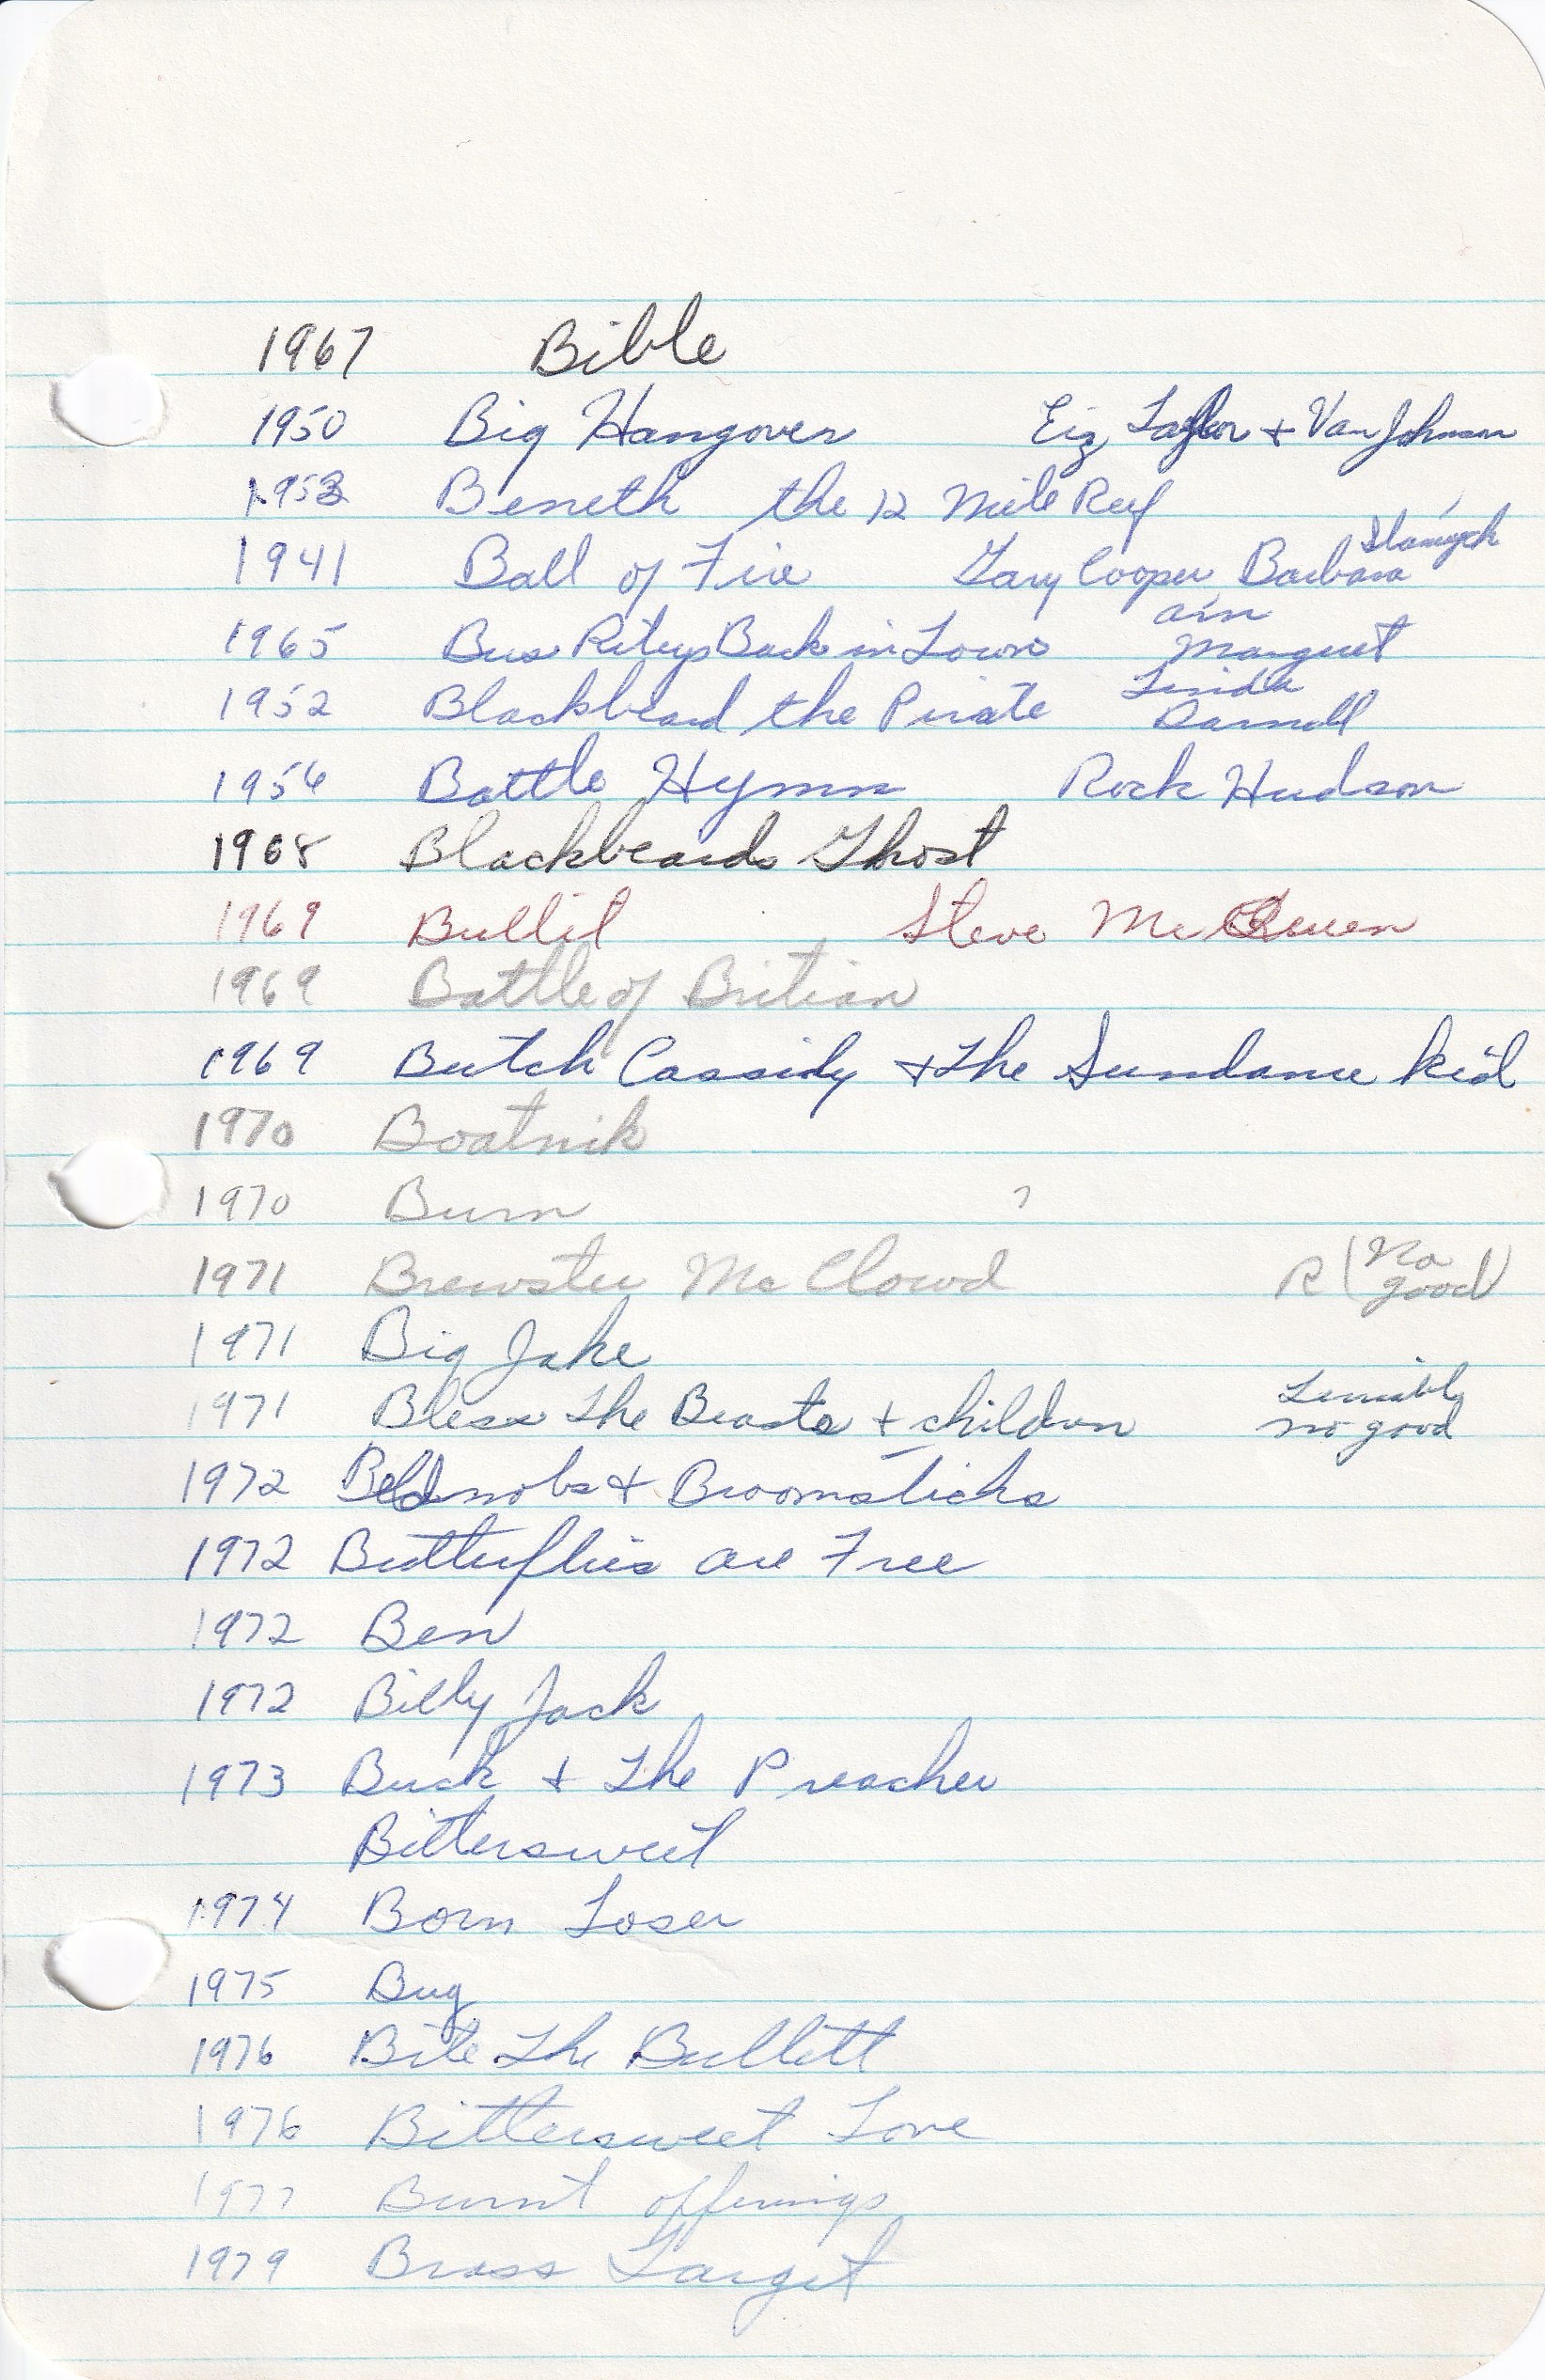 1967 Bible
1950 Big Hangover Liz Taylor + Van Johnson
1953 Beneth the 12 Mile Reef
1941 Ball of Fire Gary Cooper Barbara Stanwych
1965 Bus Rileys Back in Town ann Margret
1952 Blackbeard the Pirate Linda Darnell
1956 Battle Hymn Rock Hudson
1968 Blackbeards Ghost
1969 Bullit Steve McQueen
1969 Battle of Britian
1969 Butch Cassidy + The Sundance kid
1970 Boatnik
1970 Burn ?
1971 Brewster McClowd R (No good)
1971 Big Jake
1971 Bless The Beasts + children Terribly no good
1972 Bednobs + Broomsticks
1972 Butterflies are Free
1972 Ben
1972 Billy Jack
1973 Buck + The Preacher
Bittersweet
1974 Born Loser
1975 Bug
1976 Bite The Bullett
1976 Bittersweet Love
1977 Burnt offerings
1979 Brass Target